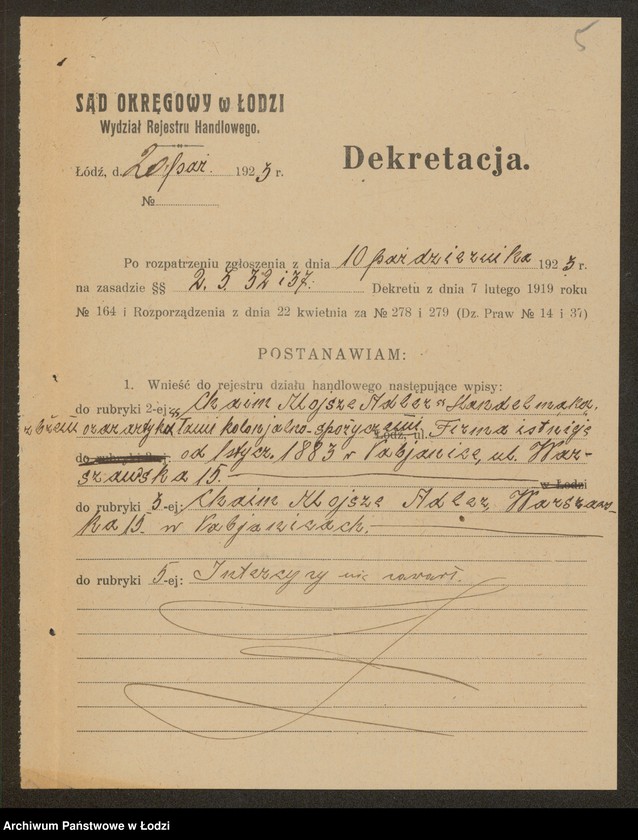 5
SĄD OKRĘGOWY w ŁODZI
Wydział Rejestru Handlowego.
Dekretacja.
Łódź, d. 20 paź. 1923 r.
№
Po rozpatrzeniu zgłoszenia z dnia 10 października 1923 r.
na zasadzie §§ 2. 5. 32 i 37. Dekretu z dnia 7 lutego 1919 roku
№ 164 i Rozporządzenia z dnia 22 kwietnia za № 278 i 279 (Dz. Praw № 14 i 37)
POSTANAWIAM:
1. Wnieść do rejestru działu handlowego następujące wpisy:
do rubryki 2-ej: „Chaim Mojsze Adler" Handel mąką,
zbożem oraz artykułami kolonjalno-spożyczemi Łódź, ul. Firma istnieje
do rubryki od 1 stycz. 1883 r Pabjanice, ul. War-
szawska 15. w Łodzi
do rubryki 3-ej: Chaim Mojsze Adler, Warszaw-
ka 15. w Pabjanicach.
do rubryki 5-ej: Intercyzy nie zawarł.
Archiwum Państwowe w Łodzi